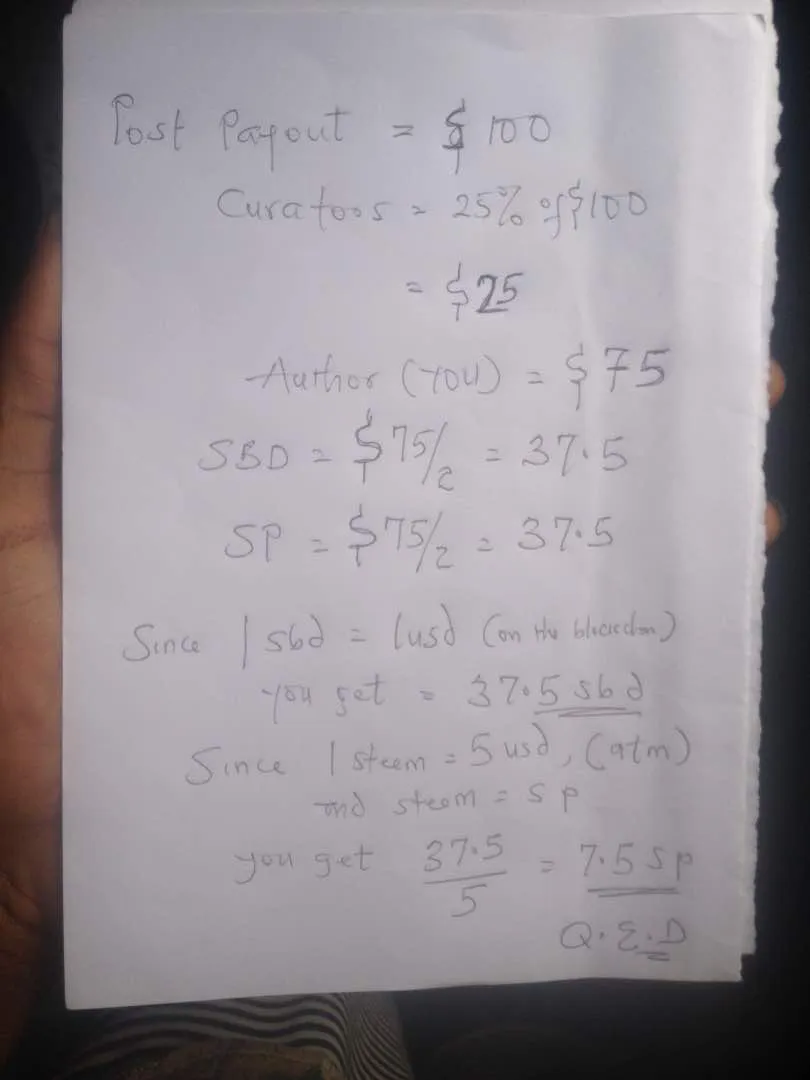 Post Payout = $100
Curators = 25% of $100
= $25
Author (YOU) = $75
SBD = $75/2 = 37.5
SP = $75/2 = 37.5
Since 1 sbd = 1usd (on the blockchain)
you get = 37.5 sbd
Since 1 steem = 5 usd, (atm)
and steem = sp
you get 37.5/5 = 7.5 sp
Q.E.D